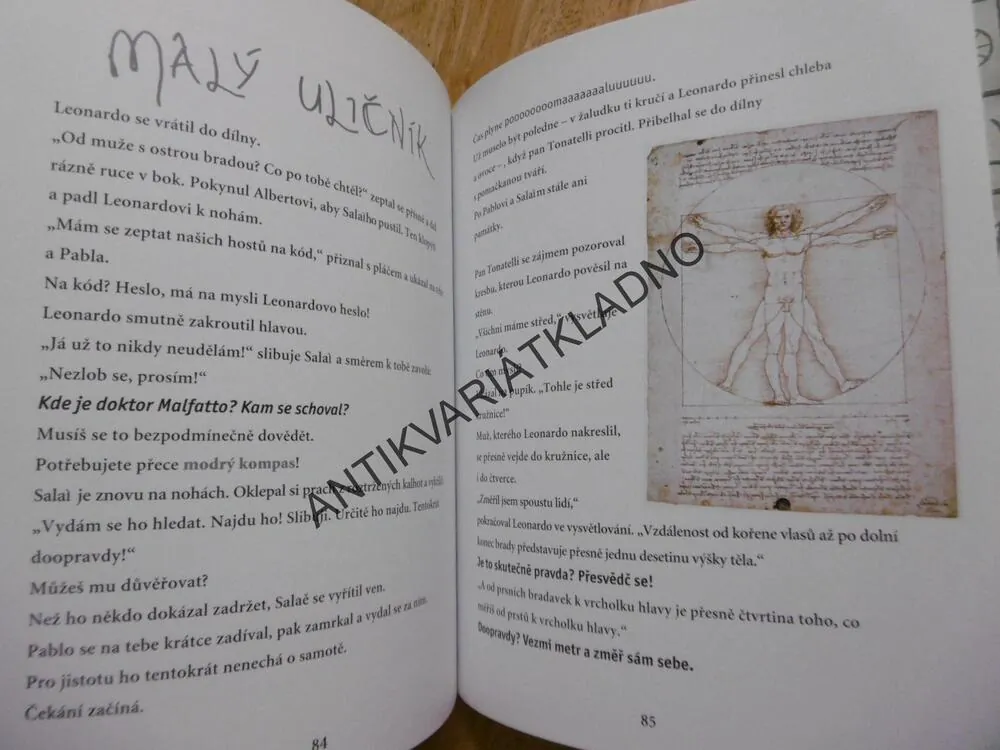 MALÝ ULIČNÍK
Leonardo se vrátil do dílny.
„Od muže s ostrou bradou? Co po tobě chtěl?“ zeptal se přísně a dal
rázně ruce v bok. Pokynul Albertovi, aby Salaìho pustil. Ten klopýtl
a padl Leonardovi k nohám.
„Mám se zeptat našich hostů na kód,“ přiznal s pláčem a ukázal na tebe
a Pabla.
Na kód? Heslo, má na mysli Leonardovo heslo!
Leonardo smutně zakroutil hlavou.
„Já už to nikdy neudělám!“ slibuje Salaì a směrem k tobě zavolá:
„Nezlob se, prosím!“
Kde je doktor Malfatto? Kam se schoval?
Musíš se to bezpodmínečně dovědět.
Potřebujete přece modrý kompas!
Salaì je znovu na nohách. Oklepal si prach z roztržených kalhot a
„Vydám se ho hledat. Najdu ho! Slibuji. Určitě ho najdu. Tentokrát
doopravdy!“
Můžeš mu důvěřovat?
Než ho někdo dokázal zadržet, Salaě se vyřítil ven.
Pablo se na tebe krátce zadíval, pak zamrkal a vydal se za ním.
Pro jistotu ho tentokrát nenechá o samotě.
Čekání začíná.
84
Čas plyne pooooooomaaaaaaaluuuuuu.
Už muselo být poledne – v žaludku ti kručí a Leonardo přinesl chleba
a ovoce –, když pan Tonatelli procitl. Přibelhal se do dílny
s pomačkanou tváří.
Po Pablovi a Salaìm stále ani
památky.
Pan Tonatelli se zájmem pozoroval
kresbu, kterou Leonardo pověsil na
stěnu.
„Všichni máme střed,“ vysvětluje
Leonardo.
Co tím myslí?
pupík. „Tohle je střed
kružnice!“
Muž, kterého Leonardo nakreslil,
se přesně vejde do kružnice, ale
i do čtverce.
„Změřil jsem spoustu lidí,“
pokračoval Leonardo ve vysvětlování. „Vzdálenost od kořene vlasů až po dolní
konec brady představuje přesně jednu desetinu výšky těla.“
Je to skutečně pravda? Přesvědč se!
„A od prsních bradavek k vrcholku hlavy je přesně čtvrtina toho, co
měříš od prstů k vrcholku hlavy.“
Doopravdy? Vezmi metr a změř sám sebe.
85
ANTIKVARIÁTKLADNO